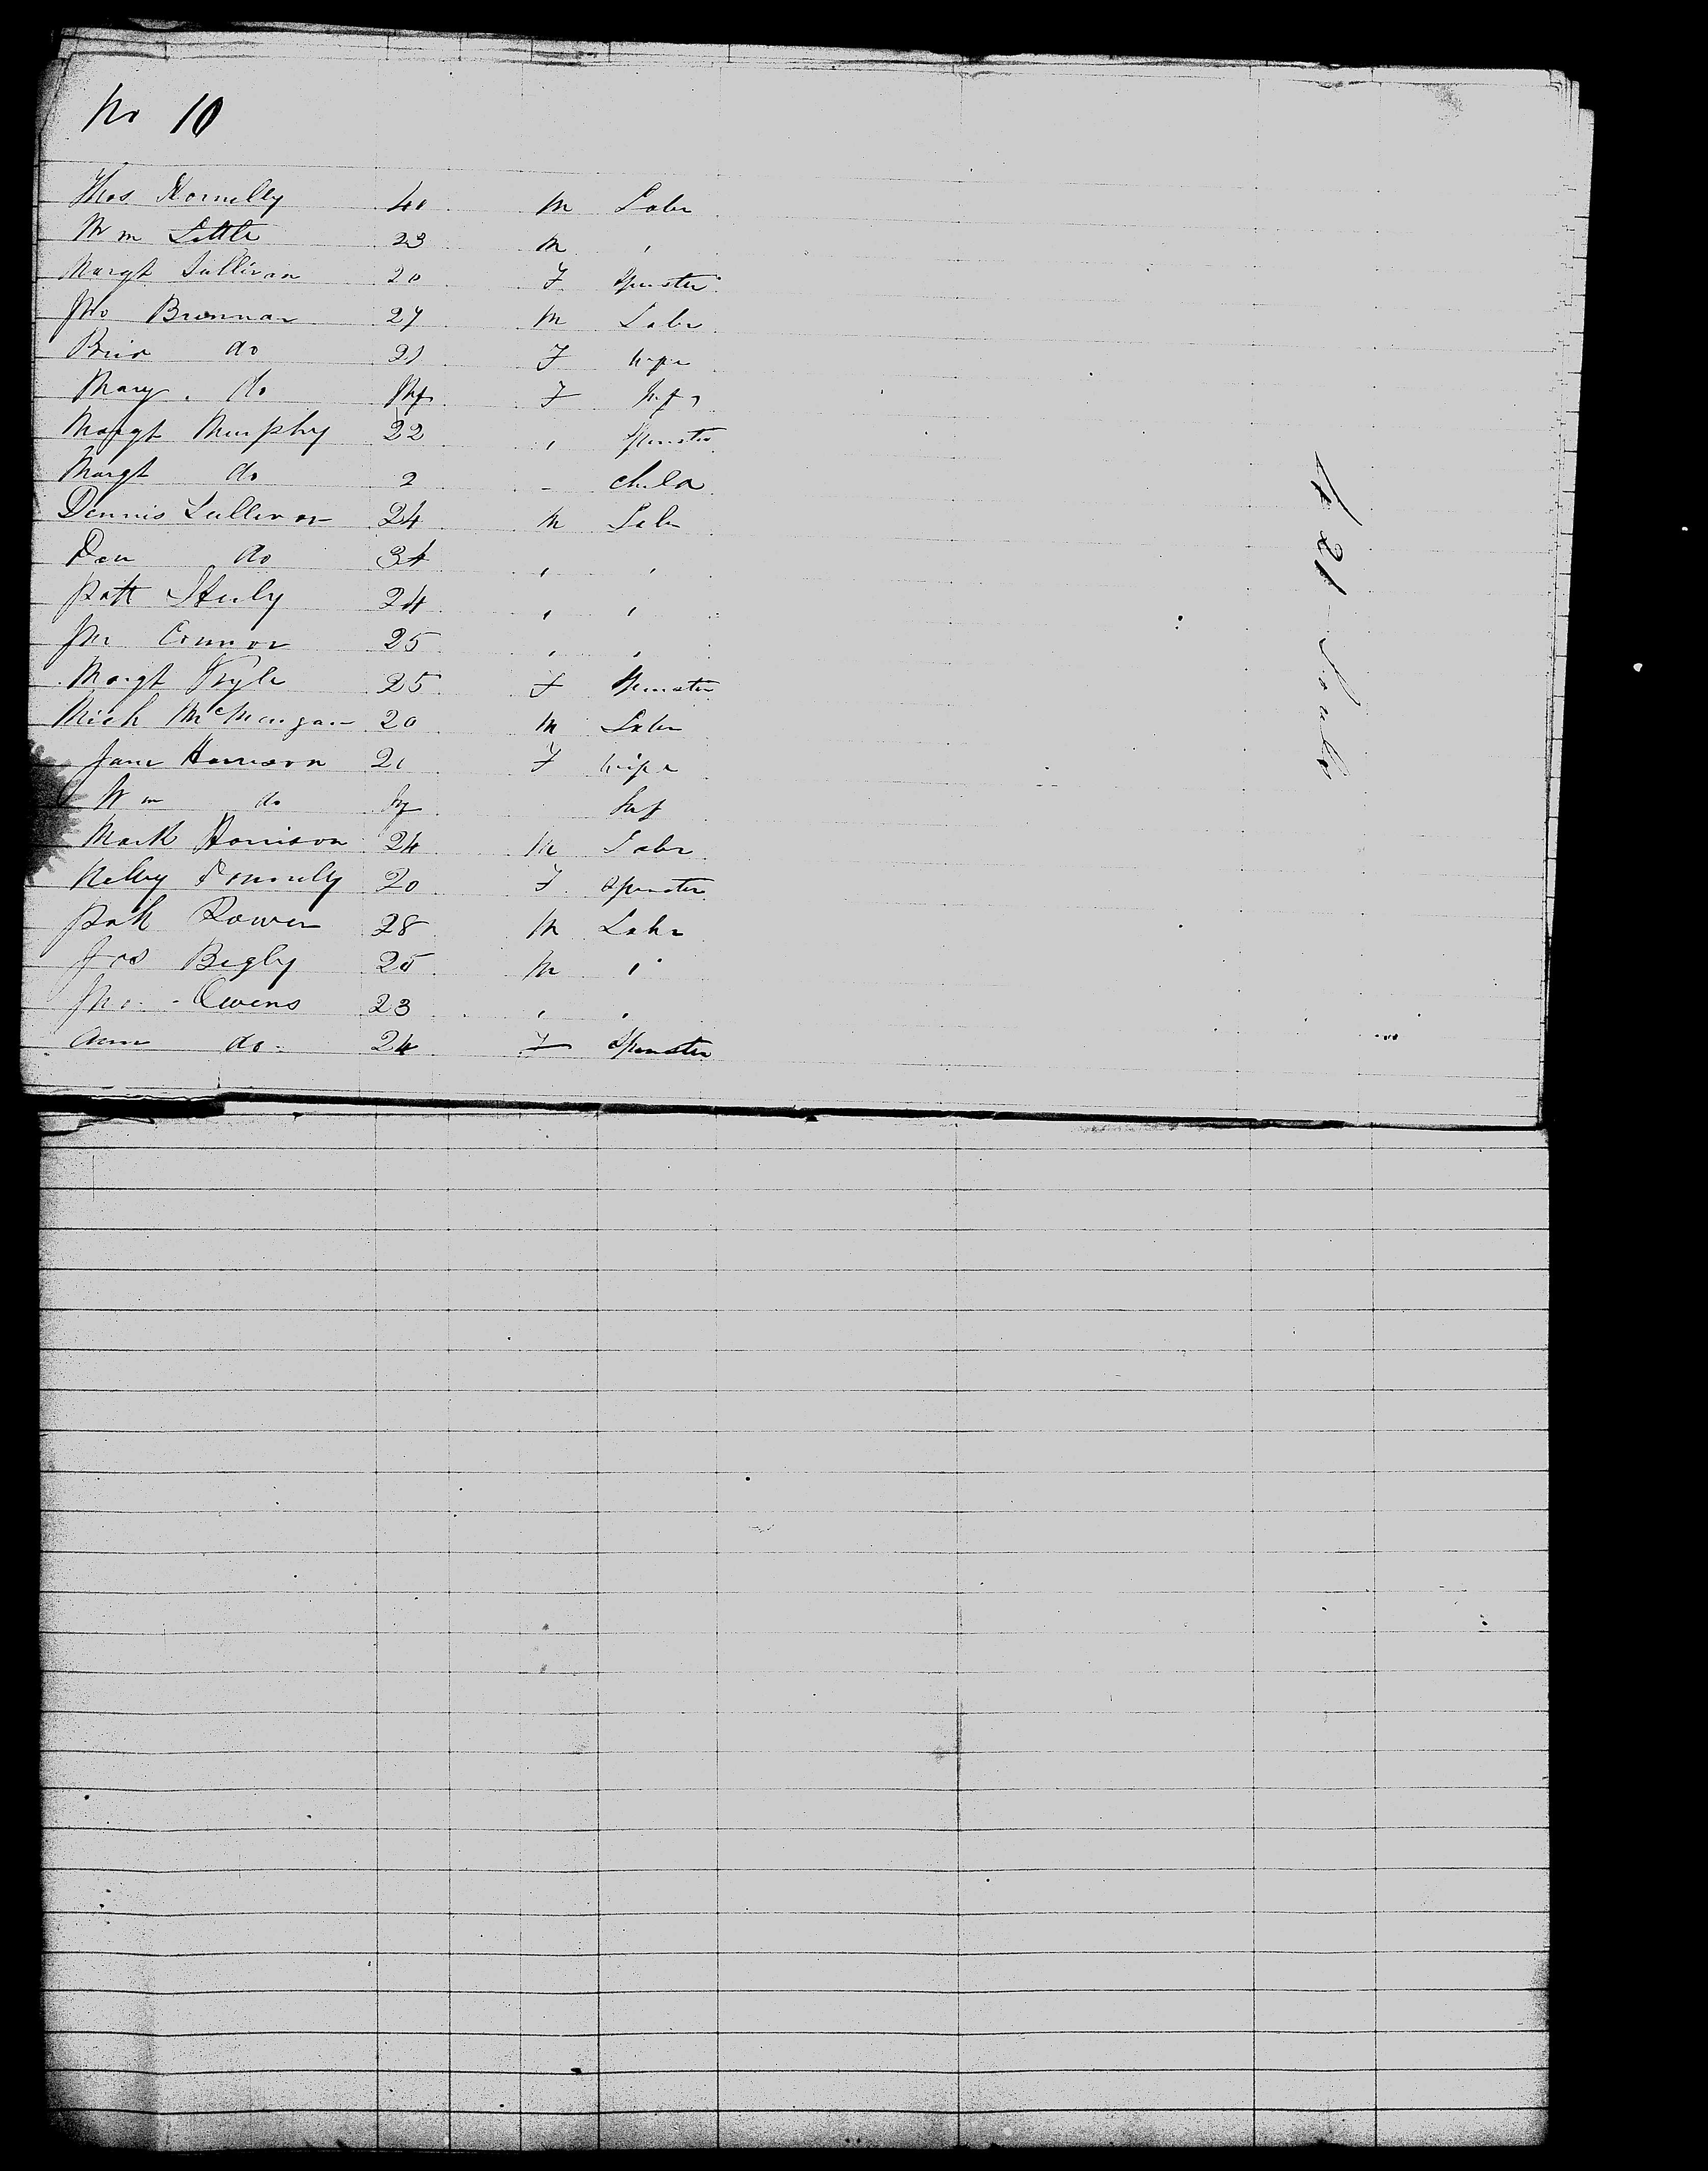 No 10
Thos Donnelly 40 M Labr
Wm Little 23 M "
Margt Sullivan 20 F Spinster
Jno Brennan 27 M Labr
do 21 F Wife
Mary do Inf F Inf
Margt Murphy 22 " Spinster
Margt do 2 - child
Dennis Sullivan 24 M Labr
Dan do 34 " "
Patt 24 " "
Jno Connor 25 " "
Margt Kyle 25 F Spinster
Mich 20 M Labr
Jane Harrison 21 F Wife
Wm do Inf Inf
Mark Harrison 24 M Labr
Donnelly 20 F Spinster
Patk 28 M Labr
Jas Begly 25 M "
Jno Owens 23 " "
Ann do 24 F Spinster
Souls